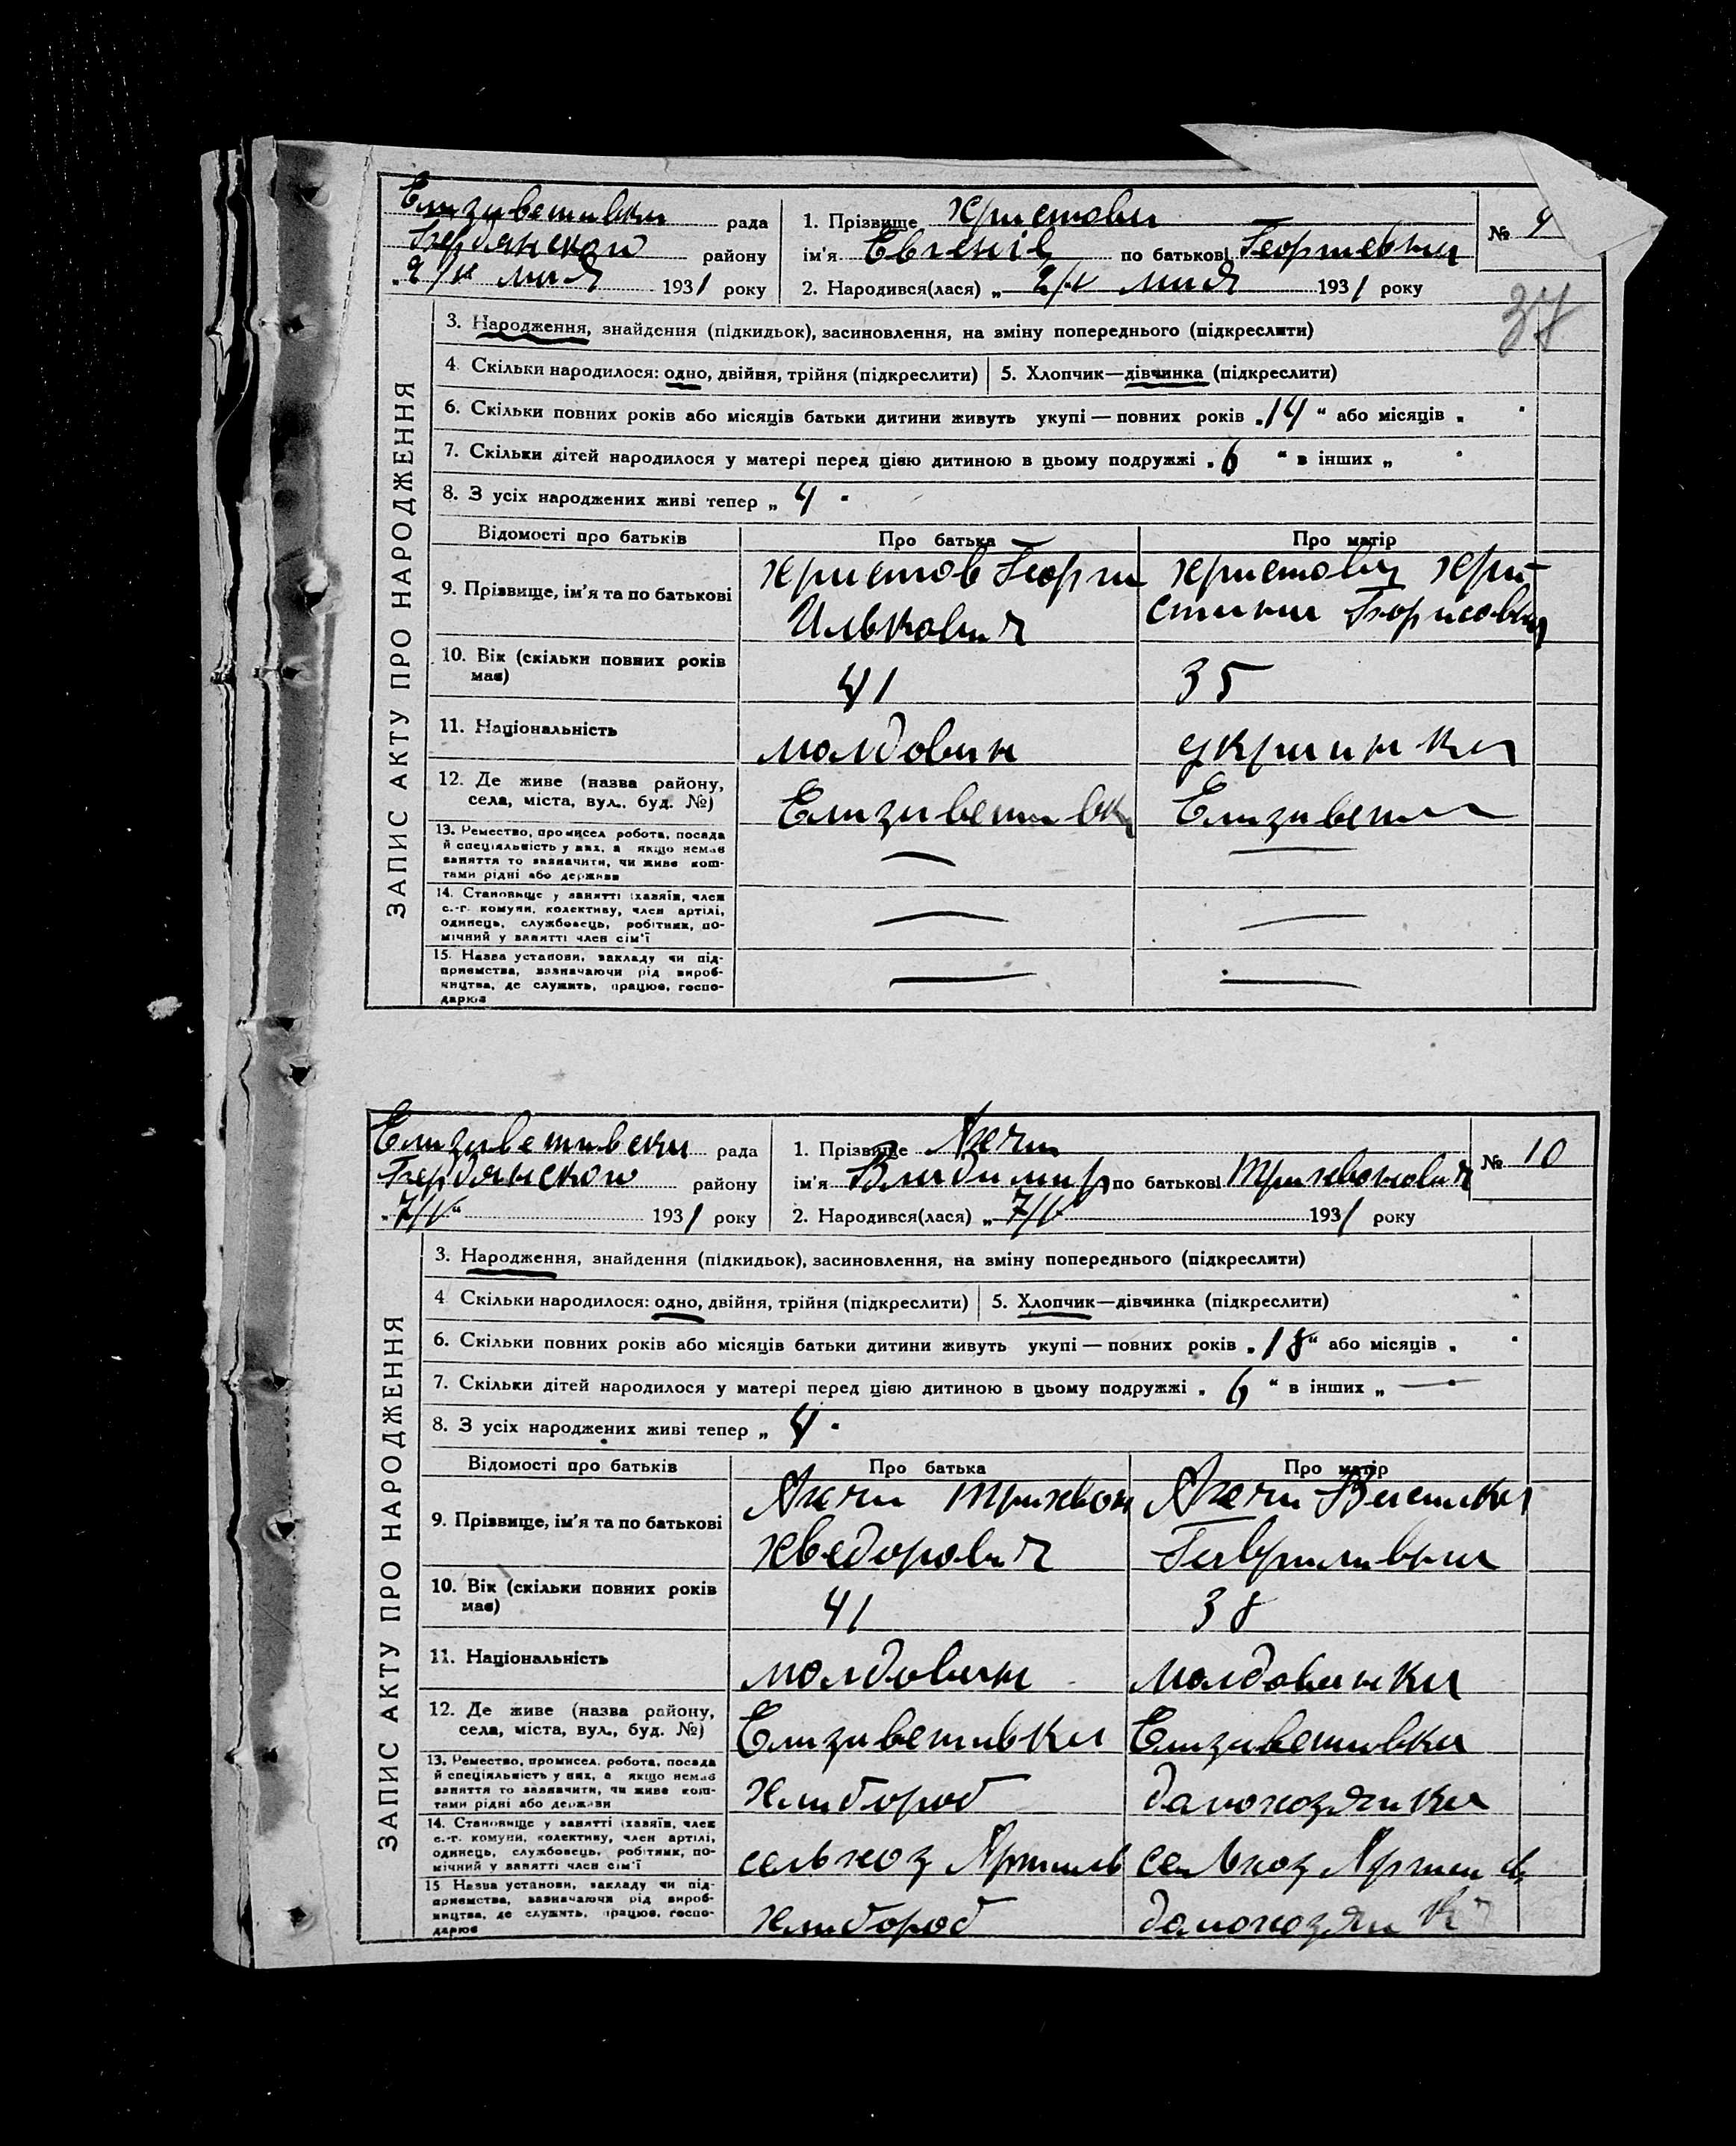 Елизаветивки рада
Бердянской району
„2/V мая 1931 року
1. Прізвище Христова
ім'я Евгенів по батькові Георгиевна
2. Народився(лася) „2/V мая 1931 року
№ 9
37
ЗАПИС АКТУ ПРО НАРОДЖЕННЯ
3. Народження, знайдення (підкидьок), засиновлення, на зміну попереднього (підкреслити)
4. Скільки народилося: одно, двійня, трійня (підкреслити) 5. Хлопчик—дівчинка (підкреслити)
6. Скільки повних років або місяців батьки дитини живуть укупі — повних років „14“ або місяців „
7. Скільки дітей народилося у матері перед цією дитиною в цьому подружжі „6“ в інших „
8. З усіх народжених живі тепер „4
Відомості про батьків Про батька Про матір
9. Прізвище, ім'я та по батькові
Христов Георги
Илькович
Христова Хри-
стина Борисовна
10. Вік (скільки повних років має)
41 35
11. Національність
молдован украинка
12. Де живе (назва району,
села, міста, вул., буд. №)
Елизаветивка Елизавети
13. Ремество, промисел робота, посада
й спеціяльність у них, а якщо немає
заняття то зазначити, чи живе кош-
тами рідні або держави
14. Становище у занятті (хазяїн, член
с.-г. комуни, колективу, член артілі,
одинець, службовець, робітник, по-
мічний у занятті член сім'ї
15. Назва установи, закладу чи під-
приємства, зазначаючи рід вироб-
ництва, де служить, працює, госпо-
дарює
Елизаветивски рада
Бердянской району
„7/V“ 1931 року
1. Прізвище
ім'я Владимир по батькові Трихвонович
2. Народився(лася) „7/V 1931 року
№ 10
ЗАПИС АКТУ ПРО НАРОДЖЕННЯ
3. Народження, знайдення (підкидьок), засиновлення, на зміну попереднього (підкреслити)
4 Скільки народилося: одно, двійня, трійня (підкреслити) 5. Хлопчик—дівчинка (підкреслити)
6. Скільки повних років або місяців батьки дитини живуть укупі — повних років „18“ або місяців „
7. Скільки дітей народилося у матері перед цією дитиною в цьому подружжі „6“ в інших „ —
8. З усіх народжених живі тепер „4
Відомості про батьків Про батька Про матір
9. Прізвище, ім'я та по батькові
Трихвон
Хведорович
Василика
Гавриливна
10. Вік (скільки повних років має)
41 38
11. Національність
молдован молдованка
12. Де живе (назва району,
села, міста, вул., буд. №)
Елизаветивка Елизаветивка
13. Ремество, промисел, робота, посада
й спеціяльність у них, а якщо немає
заняття то зазначити, чи живе кош-
тами рідні або держави
Хлибороб домохозяйка
14. Становище у занятті (хазяїн, член
с.-г. комуни, колективу, член артілі,
одинець, службовець, робітник, по-
мічний у занятті член сім'ї
сельхоз Артиль сельхоз Артиль
15 Назва установи, закладу чи під-
приємства, зазначаючи рід вироб-
ництва, де служить, працює, госпо-
дарює
Хлибороб домохозяйка